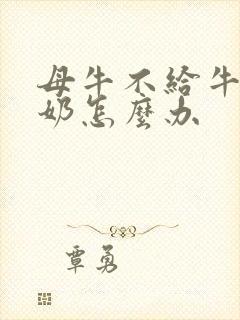 母牛不給牛
奶怎麼办
覃勇